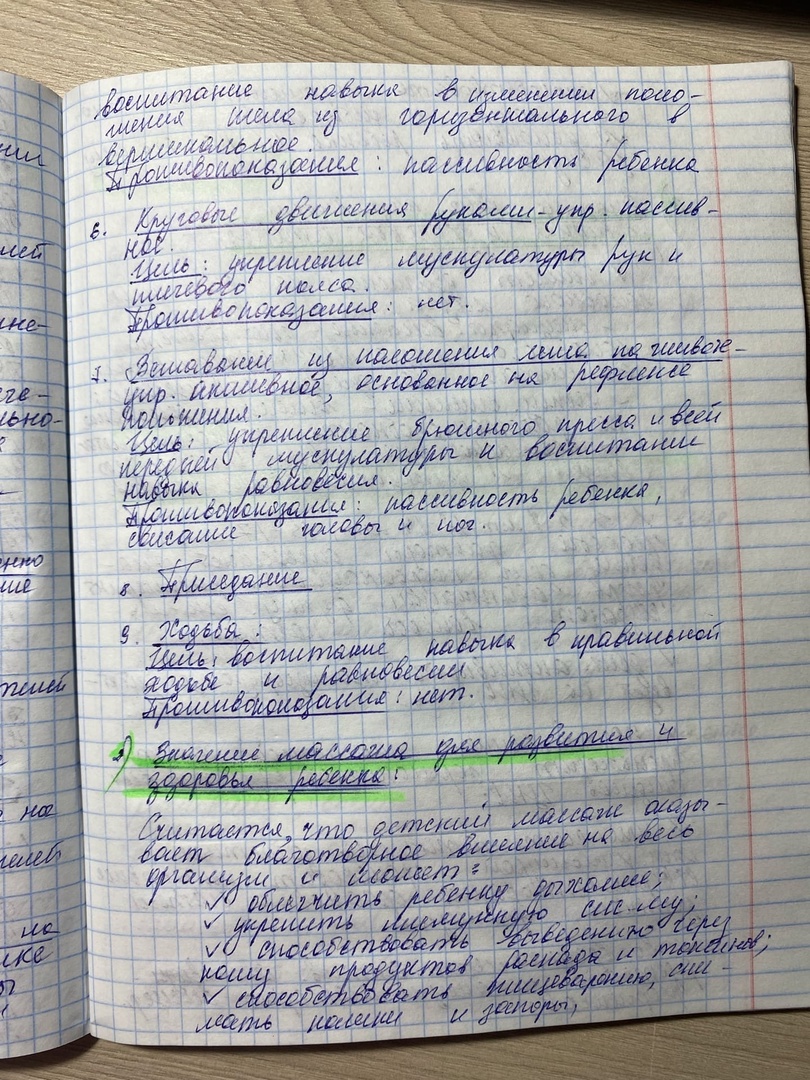 воспитание навыка в изменении поло-
жения тела из горизонтального в
вертикальное.
Противопоказания: пассивность ребенка
6. Круговые движения руками - упр. пассив-
ное.
Цель: укрепление мускулатуры рук и
плечевого пояса.
Противопоказания: нет.
7. Вставание из положения лежа на животе -
упр. активное, основанное на рефлексе
положения.
Цель: укрепление брюшного пресса и всей
передней мускулатуры и воспитании
навыка равновесия.
Противопоказания: пассивность ребенка,
свисание головы и ног.
8. Приседание
9. Ходьба:
Цель: воспитание навыка в правильной
ходьбе и равновесии
Противопоказания: нет.
2) Значение массажа для развития и
здоровья ребенка:
Считается, что детский массаж оказы-
вает благотворное влияние на весь
организм и может:
✓ облегчить ребенку дыхание;
✓ укрепить иммунную сис-му;
✓ способствовать выведению через
кожу продуктов распада и токсинов;
✓ способствовать пищеварению, сни-
мать колики и запоры,
нии
лей
но
ние
на
ы